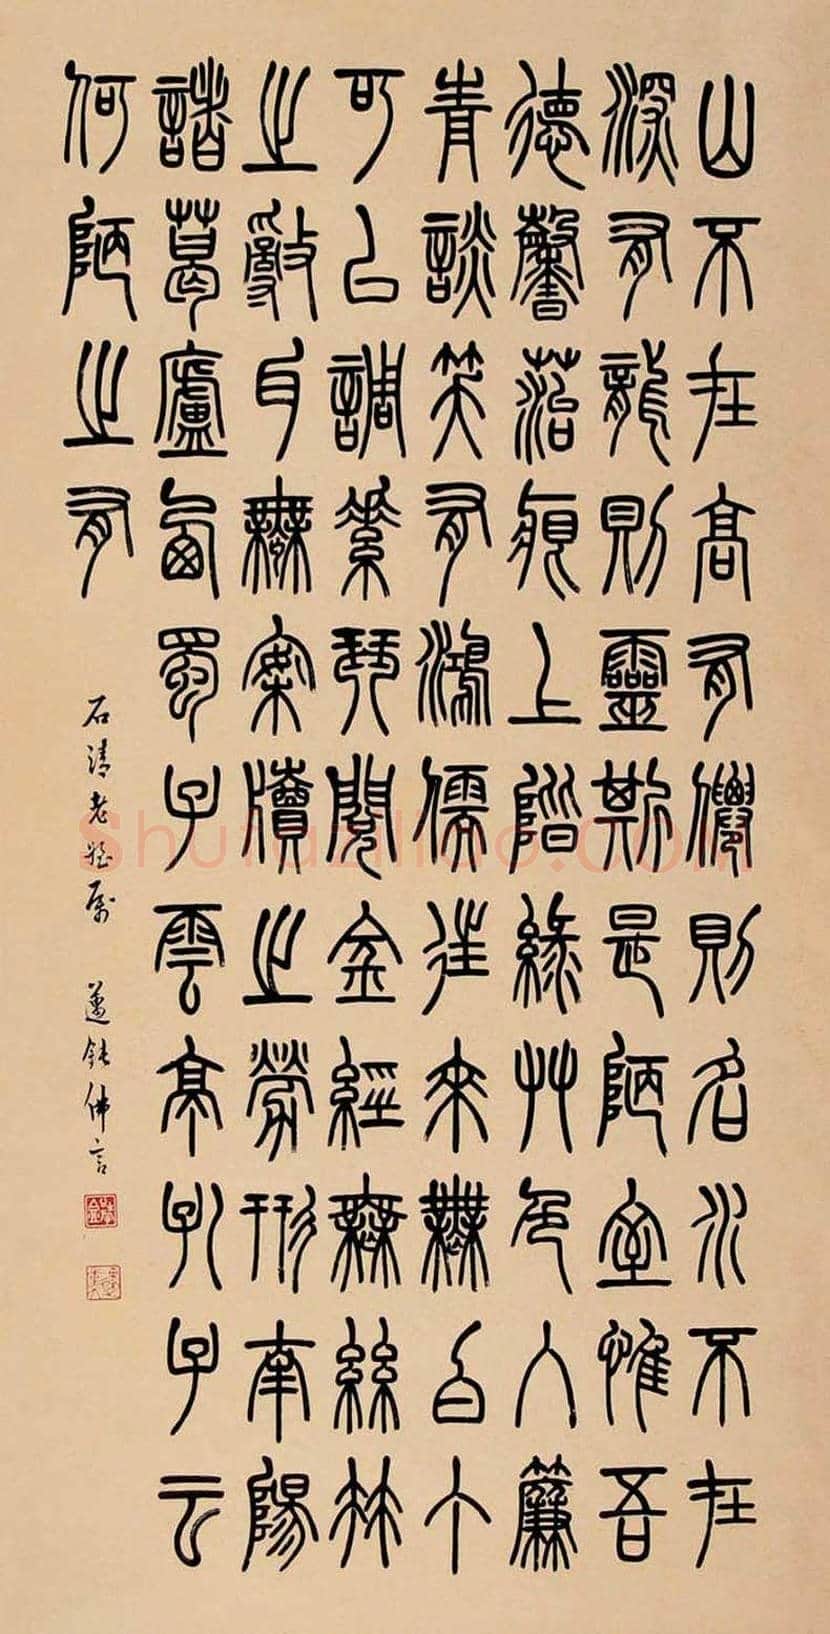 山不在高有僊則名水不在
深有龍則靈斯是陋室惟吾
德馨菭痕上階綠艸色入簾
青談笑有鴻儒往來無白丁
可㠯調素琴閱金經無絲竹
之亂耳無案牘之勞形南陽
諸葛廬西蜀子雲亭孔子云
何陋之有
石清老屬 邁鈍佛言
Shufaziliao.COM